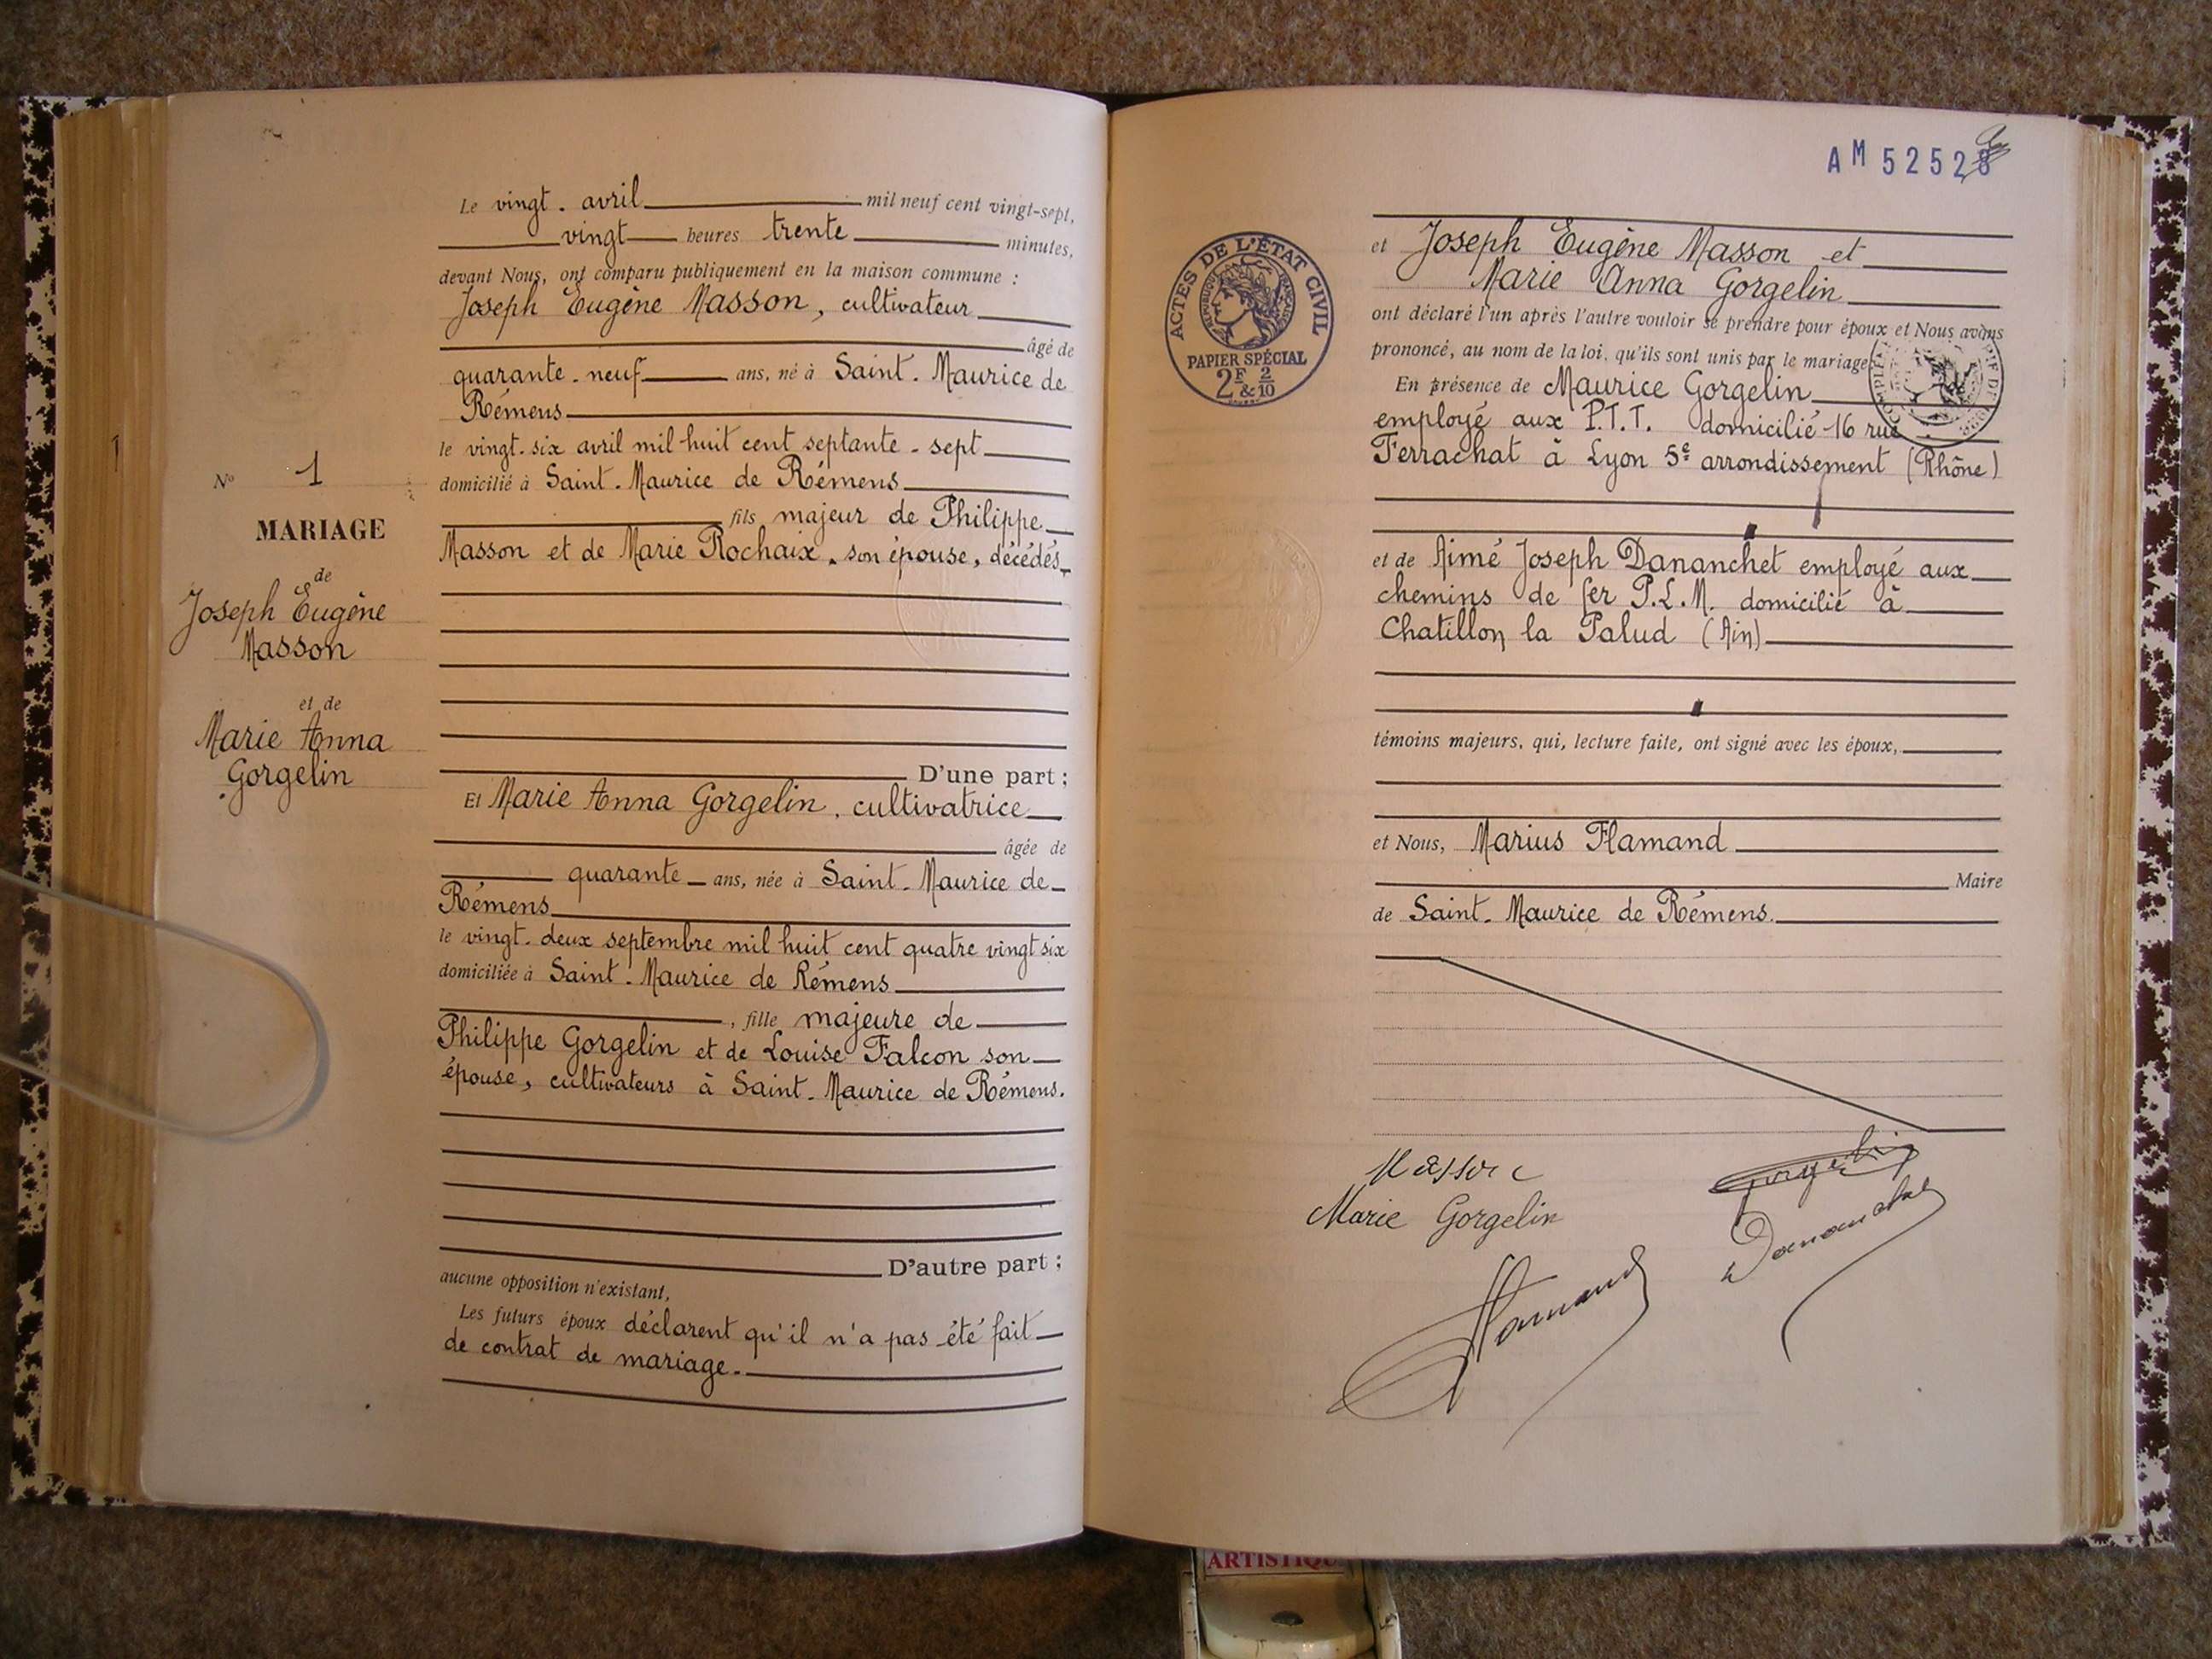 Le vingt. avril mil neuf cent vingt-sept,
vingt heures trente minutes,
devant Nous, ont comparu publiquement en la maison commune :
Joseph Eugène Masson, cultivateur
âgé de
quarante-neuf ans, né à Saint-Maurice de
Rémens
le vingt-six avril mil huit cent septante-sept
domicilié à Saint-Maurice de Rémens
fils majeur de Philippe
Masson et de Marie Rochaix, son épouse, décédés
D'une part ;
Et Marie Anna Gorgelin, cultivatrice
âgée de
quarante ans, née à Saint-Maurice de
Rémens
le vingt-deux septembre mil huit cent quatre vingt six
domiciliée à Saint-Maurice de Rémens
, fille majeure de
Philippe Gorgelin et de Louise Falcon son
épouse, cultivateurs à Saint-Maurice de Rémens.
D'autre part ;
aucune opposition n'existant,
Les futurs époux déclarent qu'il n'a pas été fait
de contrat de mariage.
No 1
MARIAGE
de
Joseph Eugène
Masson
et de
Marie Anna
Gorgelin
AM 5252
ACTES DE L'ÉTAT CIVIL
RÉPUBLIQUE FRANÇAISE
PAPIER SPÉCIAL
2F & 2/10
et Joseph Eugène Masson et
Marie Anna Gorgelin
ont déclaré l'un après l'autre vouloir se prendre pour époux et Nous avons
prononcé, au nom de la loi, qu'ils sont unis par le mariage
En présence de Maurice Gorgelin
employé aux P.T.T. domicilié 16 rue
Ferrachat à Lyon 5e arrondissement (Rhône)
et de Aimé Joseph Dananchet employé aux
chemins de fer P.L.M. domicilié à
Chatillon la Palud (Ain)
témoins majeurs, qui, lecture faite, ont signé avec les époux,
et Nous, Marius Flamand
Maire
de Saint-Maurice de Rémens.
Masson
Marie Gorgelin
Gorgelin
Dananchet
Flamand
ARTISTIQU